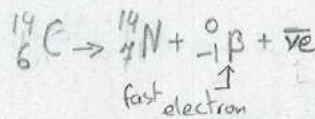 ¹⁴₆C → ¹⁴₇N + ⁰₋₁β + v̅e̅
fast electron